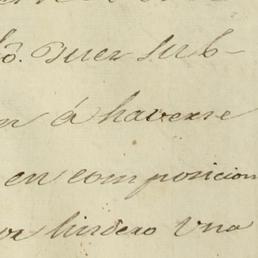 ꝺ. Juez Sub-
á haverse
en composicion
por lindero Una